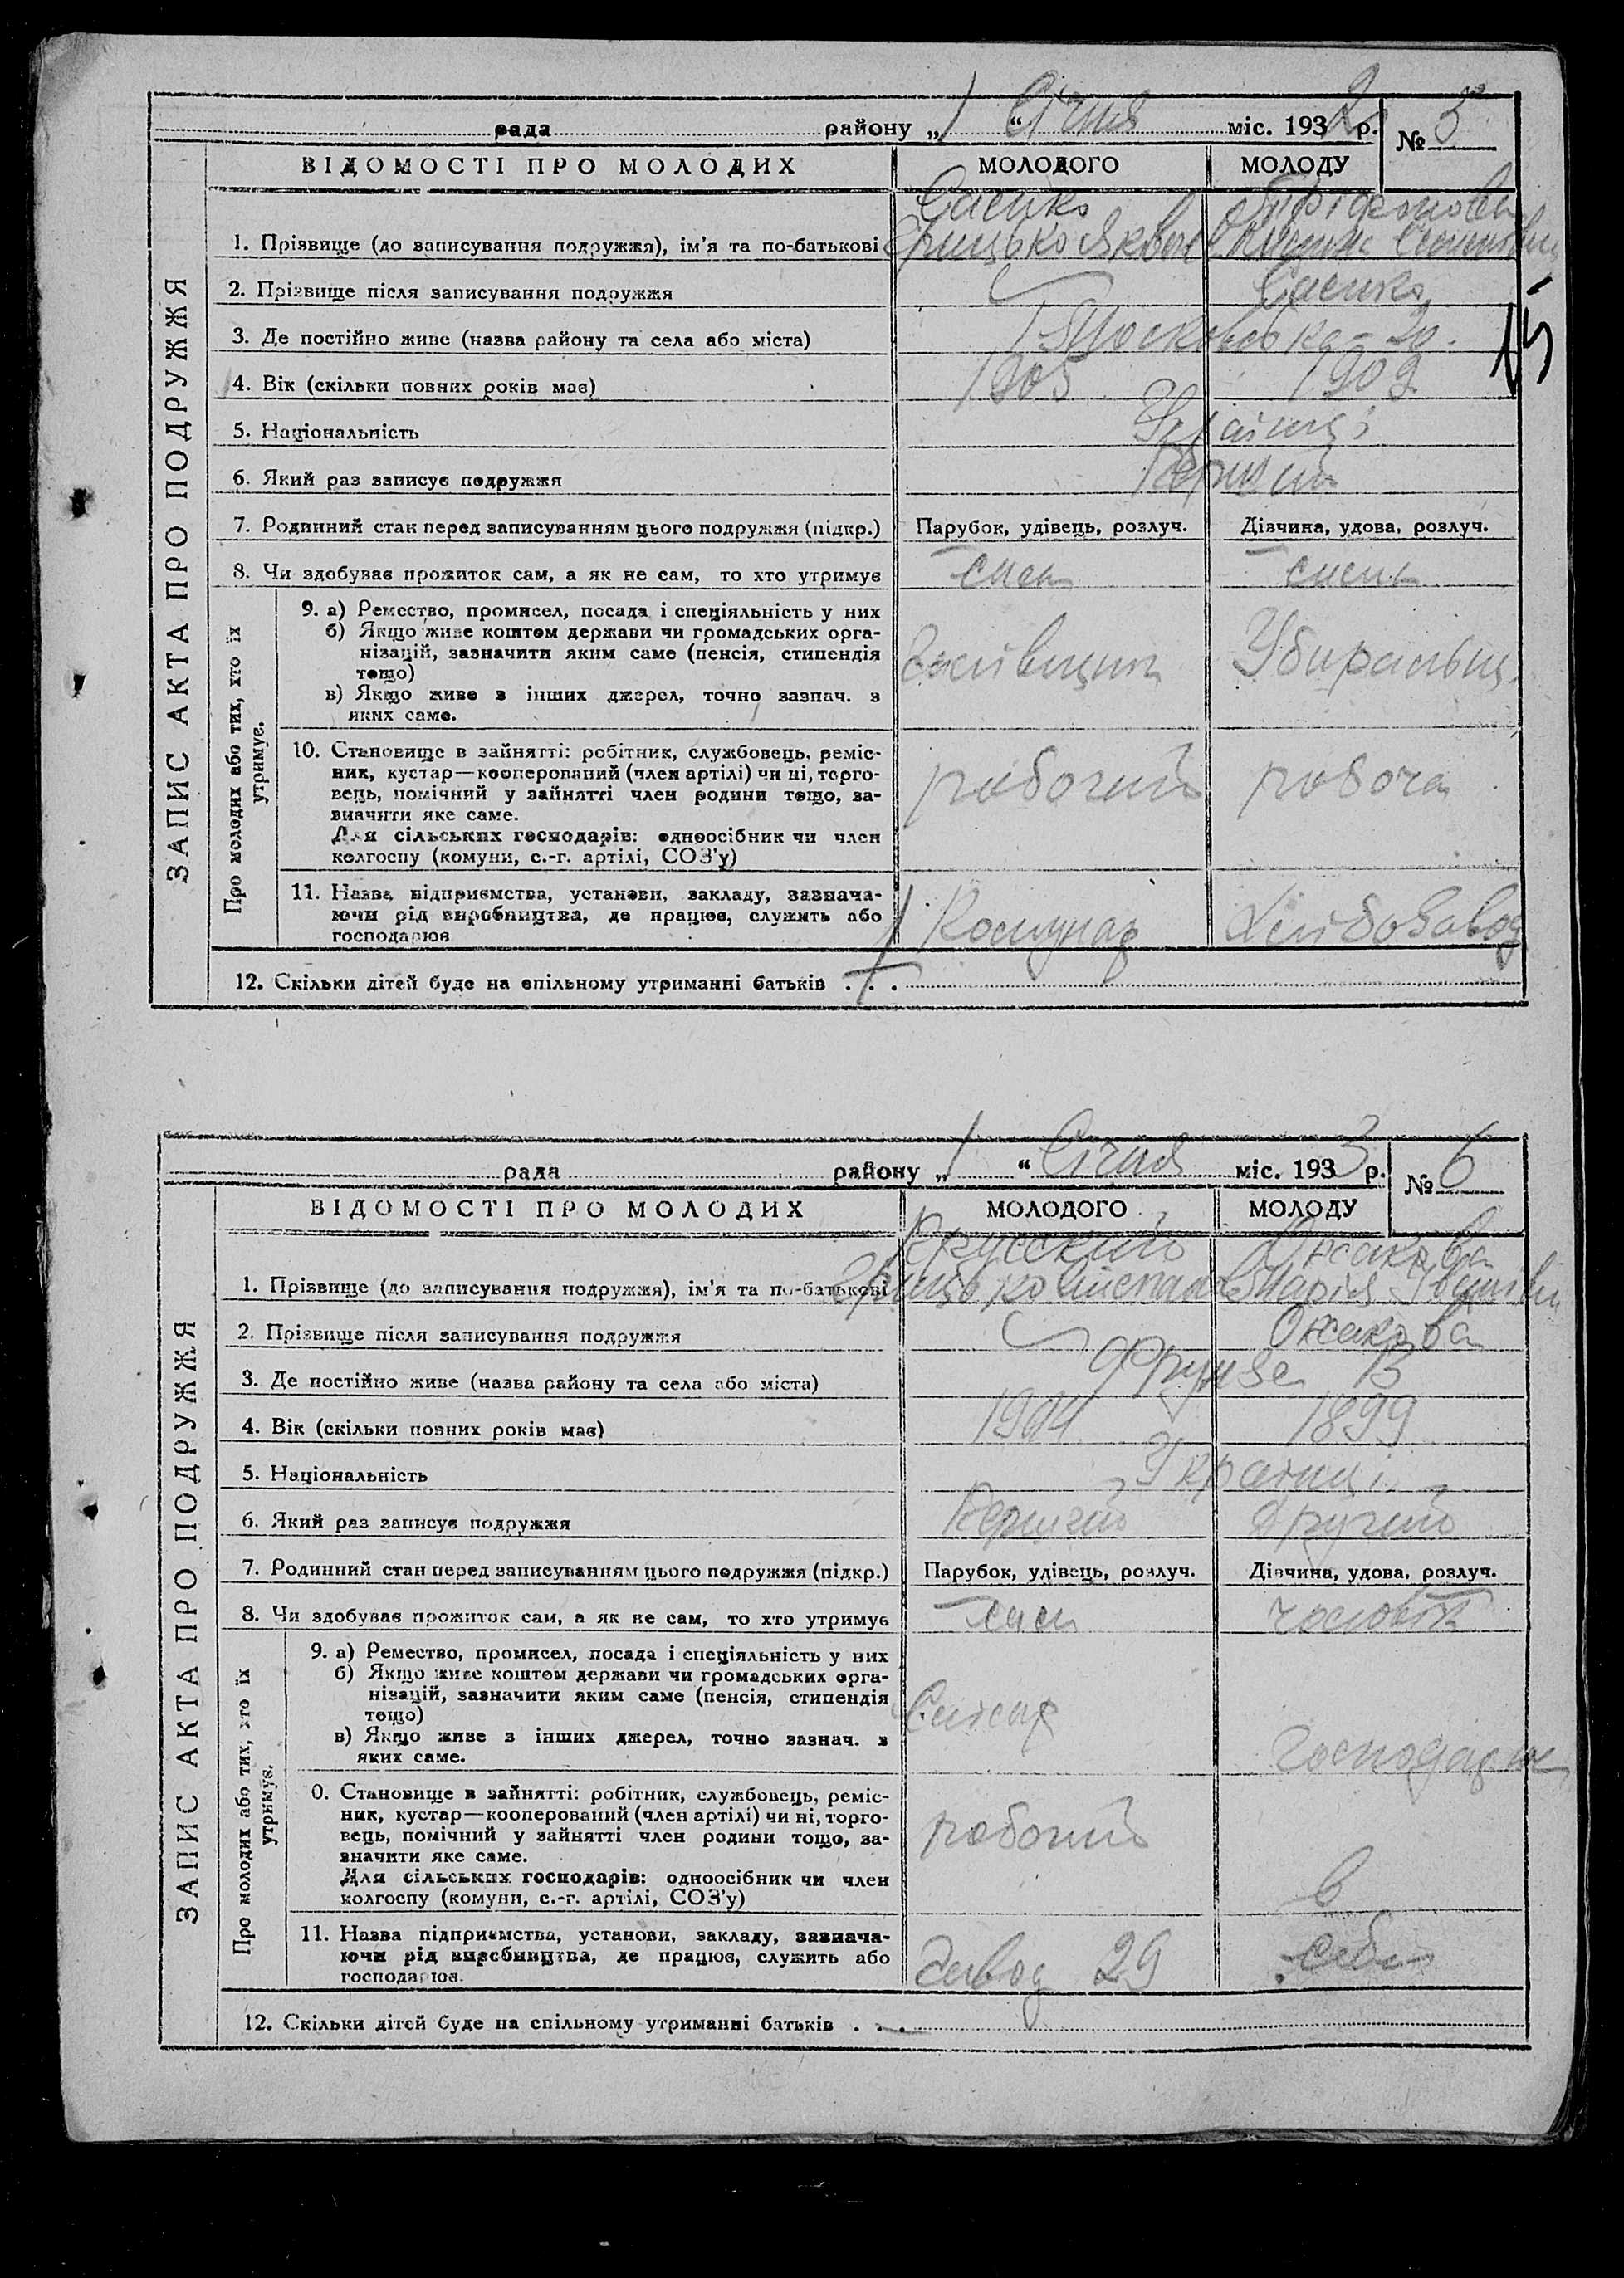 рада району „ 1 “ Січня міс. 1932 р. № 5
ВІДОМОСТІ ПРО МОЛОДИХ МОЛОДОГО МОЛОДУ
ЗАПИС АКТА ПРО ПОДРУЖЖЯ
Саєнко
1. Прізвище (до записування подружжя), ім'я та по-батькові Грицько
2. Прізвище після записування подружжя Саєнко
3. Де постійно живе (назва району та села або міста) Московська - 20.
4. Вік (скільки повних років має) 1905 1909
5. Національність
6. Який раз записує подружжя
7. Родинний стан перед записуванням цього подружжя (підкр.) Парубок, удівець, розлуч. Дівчина, удова, розлуч.
8. Чи здобуває прожиток сам, а як не сам, то хто утримує сам
Про молодих або тих, хто їх утримує.
9. а) Ремество, промисел, посада і спеціяльність у них
б) Якщо живе коштом держави чи громадських орга-
нізацій, зазначити яким саме (пенсія, стипендія
тощо)
в) Якщо живе з інших джерел, точно зазнач. з
яких саме.
10. Становище в зайнятті: робітник, службовець, реміс-
ник, кустар—кооперований (член артілі) чи ні, торго-
вець, помічний у зайнятті член родини тощо, за-
значити яке саме.
Для сільських господарів: одноосібник чи член
колгоспу (комуни, с.-г. артілі, СОЗ'у)
робочий робоча
11. Назва підприємства, установи, закладу, зазнача-
ючи рід виробництва, де працює, служить або
господарює
Комунар Хлібозавод
12. Скільки дітей буде на спільному утриманні батьків . . .
15
рада району „ 1 “ Січня міс. 1933 р. № 6
ВІДОМОСТІ ПРО МОЛОДИХ МОЛОДОГО МОЛОДУ
ЗАПИС АКТА ПРО ПОДРУЖЖЯ
1. Прізвище (до записування подружжя), ім'я та по-батькові Грицько Марія Іванівна
2. Прізвище після записування подружжя
3. Де постійно живе (назва району та села або міста) Фрунзе
4. Вік (скільки повних років має) 1904 1899
5. Національність Українці
6. Який раз записує подружжя Перший Другий
7. Родинний стан перед записуванням цього подружжя (підкр.) Парубок, удівець, розлуч. Дівчина, удова, розлуч.
8. Чи здобуває прожиток сам, а як не сам, то хто утримує сам чоловік
Про молодих або тих, хто їх утримує.
9. а) Ремество, промисел, посада і спеціяльність у них
б) Якщо живе коштом держави чи громадських орга-
нізацій, зазначити яким саме (пенсія, стипендія
тощо)
в) Якщо живе з інших джерел, точно зазнач. з
яких саме.
Слюсар
0. Становище в зайнятті: робітник, службовець, реміс-
ник, кустар—кооперований (член артілі) чи ні, торго-
вець, помічний у зайнятті член родини тощо, за-
значити яке саме.
Для сільських господарів: одноосібник чи член
колгоспу (комуни, с.-г. артілі, СОЗ'у)
робочий
в
11. Назва підприємства, установи, закладу, зазнача-
ючи рід виробництва, де працює, служить або
господарює.
Завод 29 себе
12. Скільки дітей буде на спільному утриманні батьків . . .